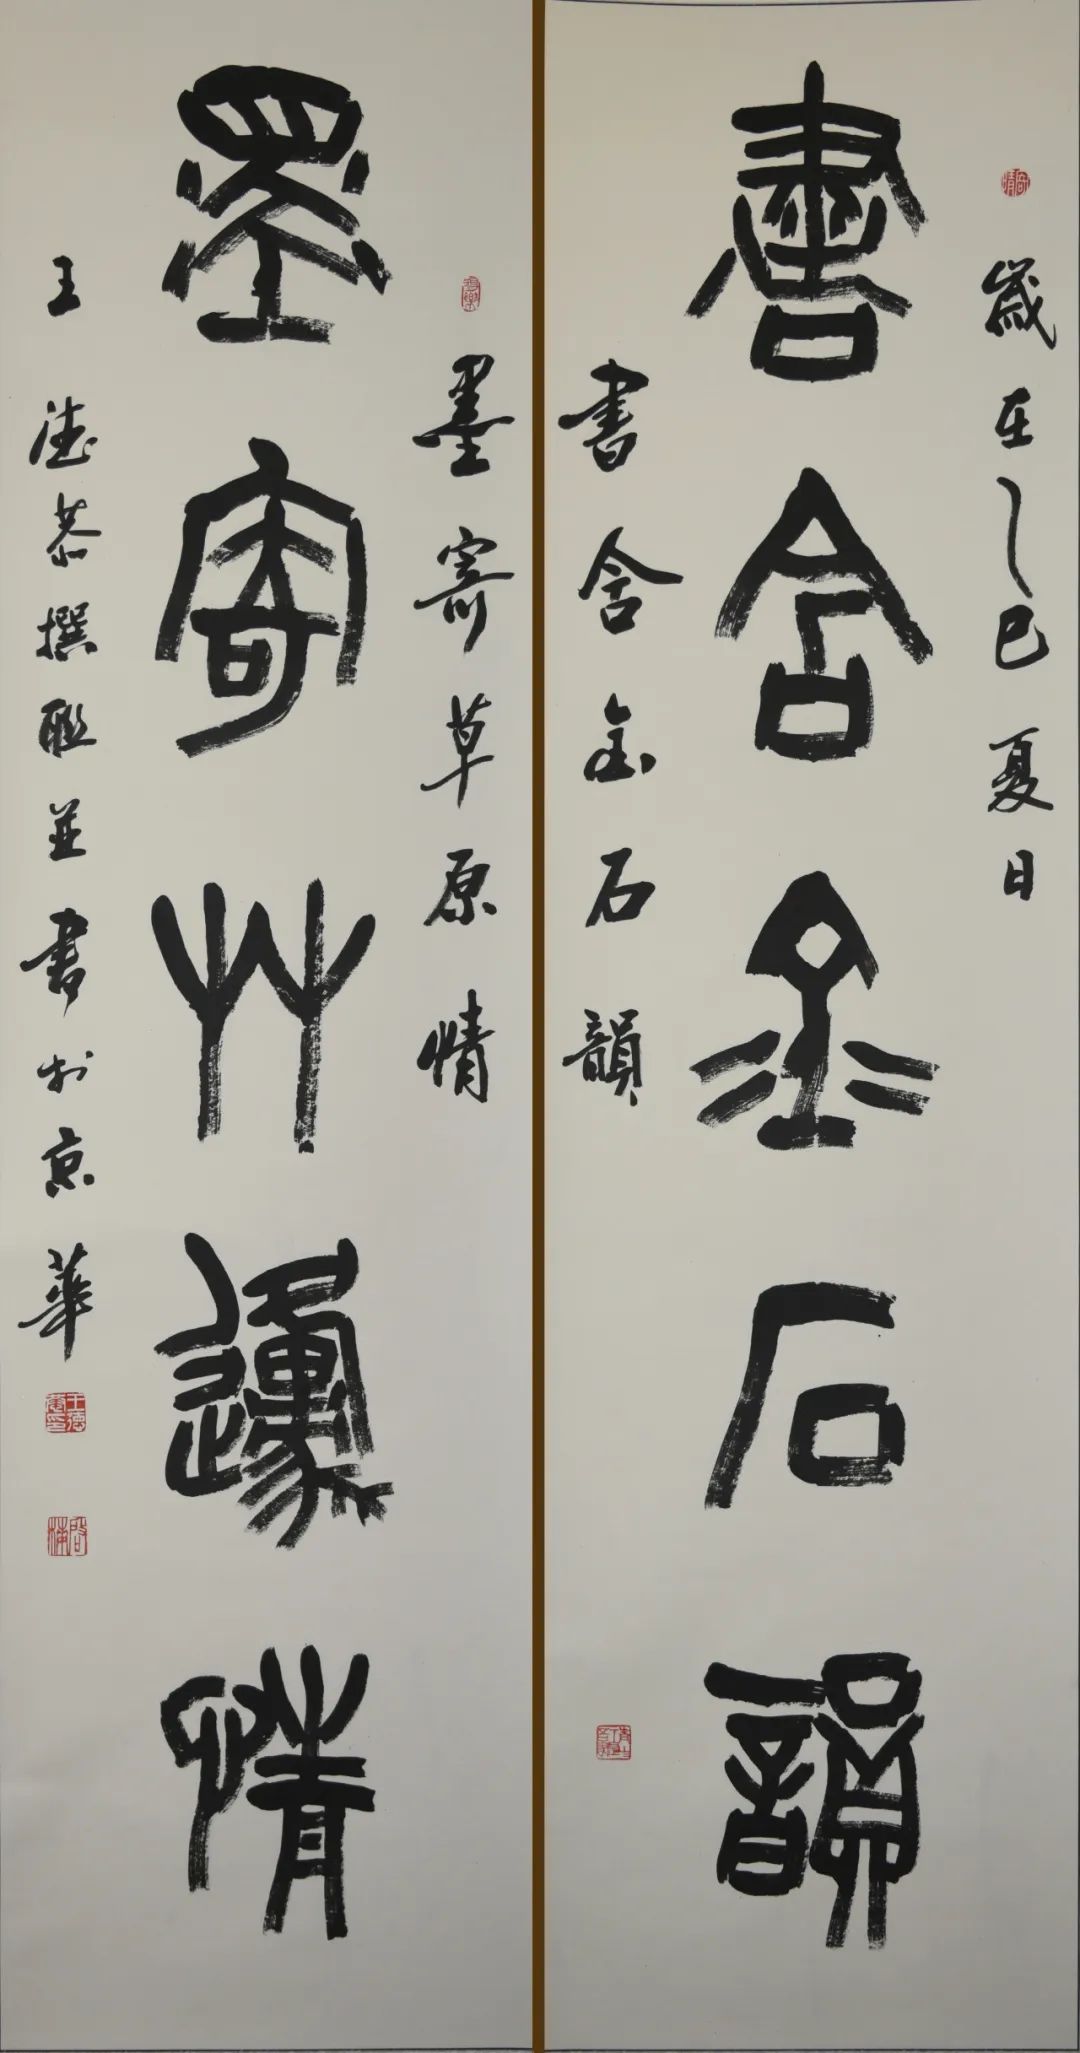 歲在乙巳夏日
書含金石韻
書含金石韻
墨寄草原情
墨寄艸邍情
王德恭撰聯並書於京華